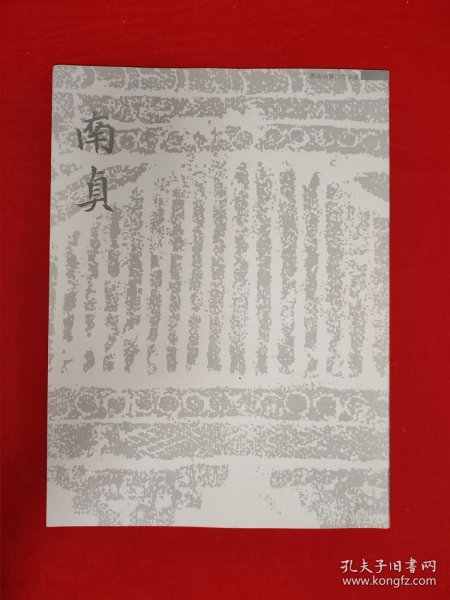 南貞
孔夫子旧书网
www.kongfz.com